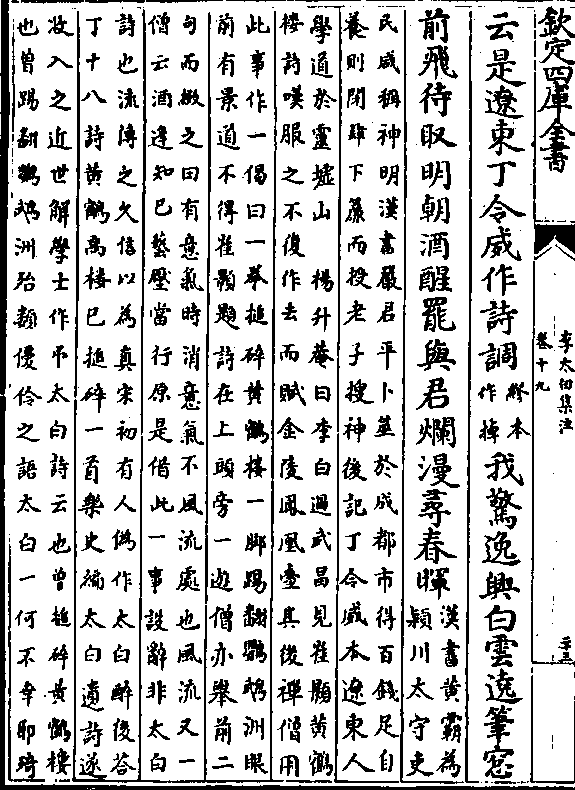 欽定四庫全書
李太白集注
卷十九
云是遼東丁令威作詩調繆本作掉我驚逸興白雲遶筆窓
前飛待取明朝酒醒罷與君爛漫尋春暉漢書黃霸為
潁川太守吏
民咸稱神明漢書嚴君平卜筮於成都市得百錢足自
養則閉肆下簾而授老子搜神後記丁令威本遼東人
學道於靈墟山 楊升菴曰李白過武昌見崔顥黃鶴
樓詩嘆服之不復作去而賦金陵鳳凰臺其後禪僧用
此事作一偈曰一拳搥碎黃鶴樓一脚踢翻鸚鵡洲眼
前有景道不得崔顥題詩在上頭旁一遊僧亦舉前二
句而綴之曰有意氣時消意氣不風流處也風流又一
僧云酒逢知已藝壓當行原是借此一事設辭非太白
詩也流傳之久信以為真宋初有人偽作太白醉後答
丁十八詩黃鶴高樓已搥碎一首樂史編太白遺詩遂
收入之近世解學士作弔太白詩云也曾搥碎黃鶴樓
也曾踢翻鸚鵡洲殆類優伶之語太白一何不幸耶琦